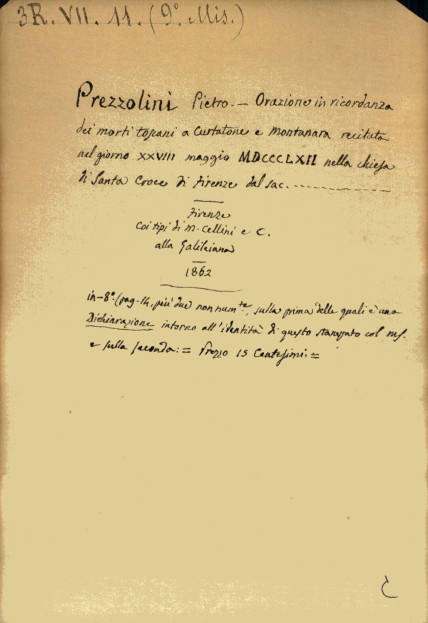 3R. VII. 11. (9º Mis.)
Prezzolini Pietro. — Orazione in ricordanza
dei morti toscani a Curtatone e Montanara recitata
nel giorno XXVIII maggio MDCCCLXII nella chiesa
di Santa Croce di Firenze dal sac.
Firenze
Coi tipi di M. Cellini e C.
alla Galileiana
1862
in-8º (pag. 14, più due non num.te, sulla prima delle quali è una
Dichiarazione intorno all'identità di questo stampato col ms.
e sulla seconda: = Prezzo 15 Centesimi: =